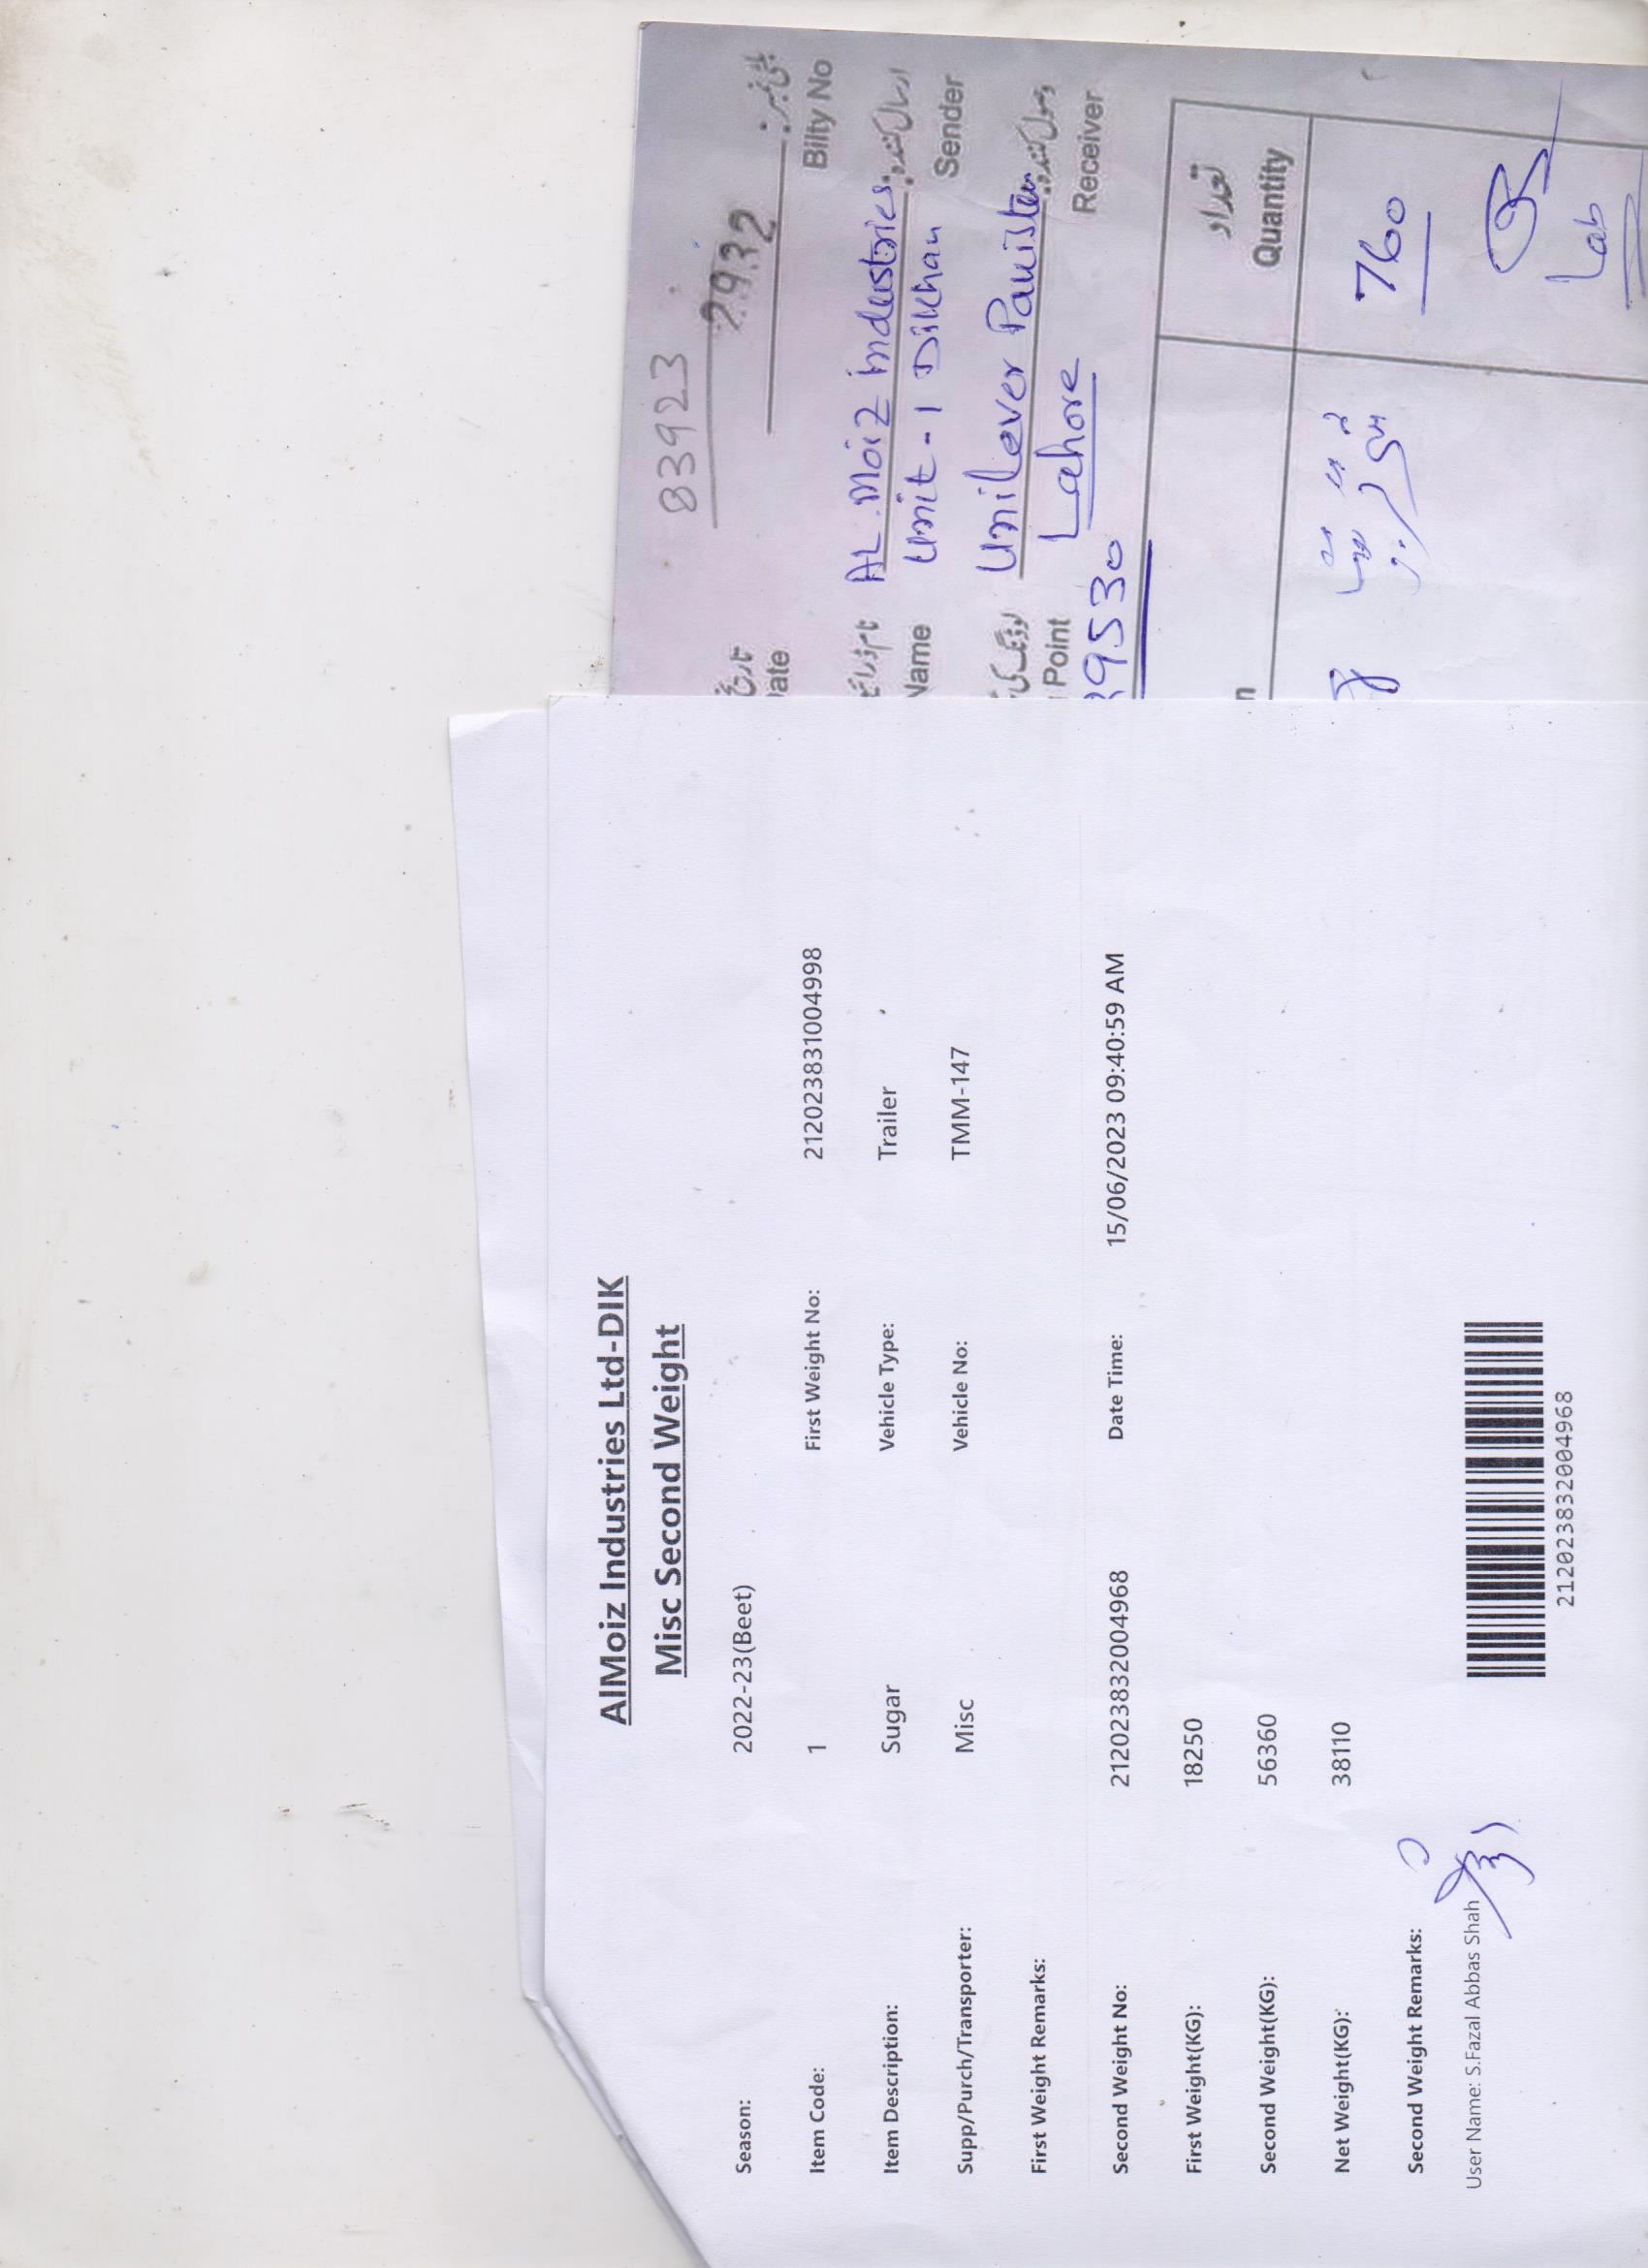 AlMoiz Industries Ltd-DIK
Misc Second Weight
Season: 2022-23(Beet)
Item Code: 1 First Weight No: 2120238310004998
Item Description: Sugar Vehicle Type: Trailer
Supp/Purch/Transporter: Misc Vehicle No: TMM-147
First Weight Remarks:
Second Weight No: 212023832004968 Date Time: 15/06/2023 09:40:59 AM
First Weight(KG): 18250
Second Weight(KG): 56360
Net Weight(KG): 38110
Second Weight Remarks:
User Name: S.Fazal Abbas Shah
212023832004968
83923
2932
Bilty No
ate
AL.Moiz industries
ارسال کنندہ
Name Unit-1 DIKhan Sender
Unilever Pakistan
Point Lahore Receiver
9530
تعداد
Quantity
760
Lab